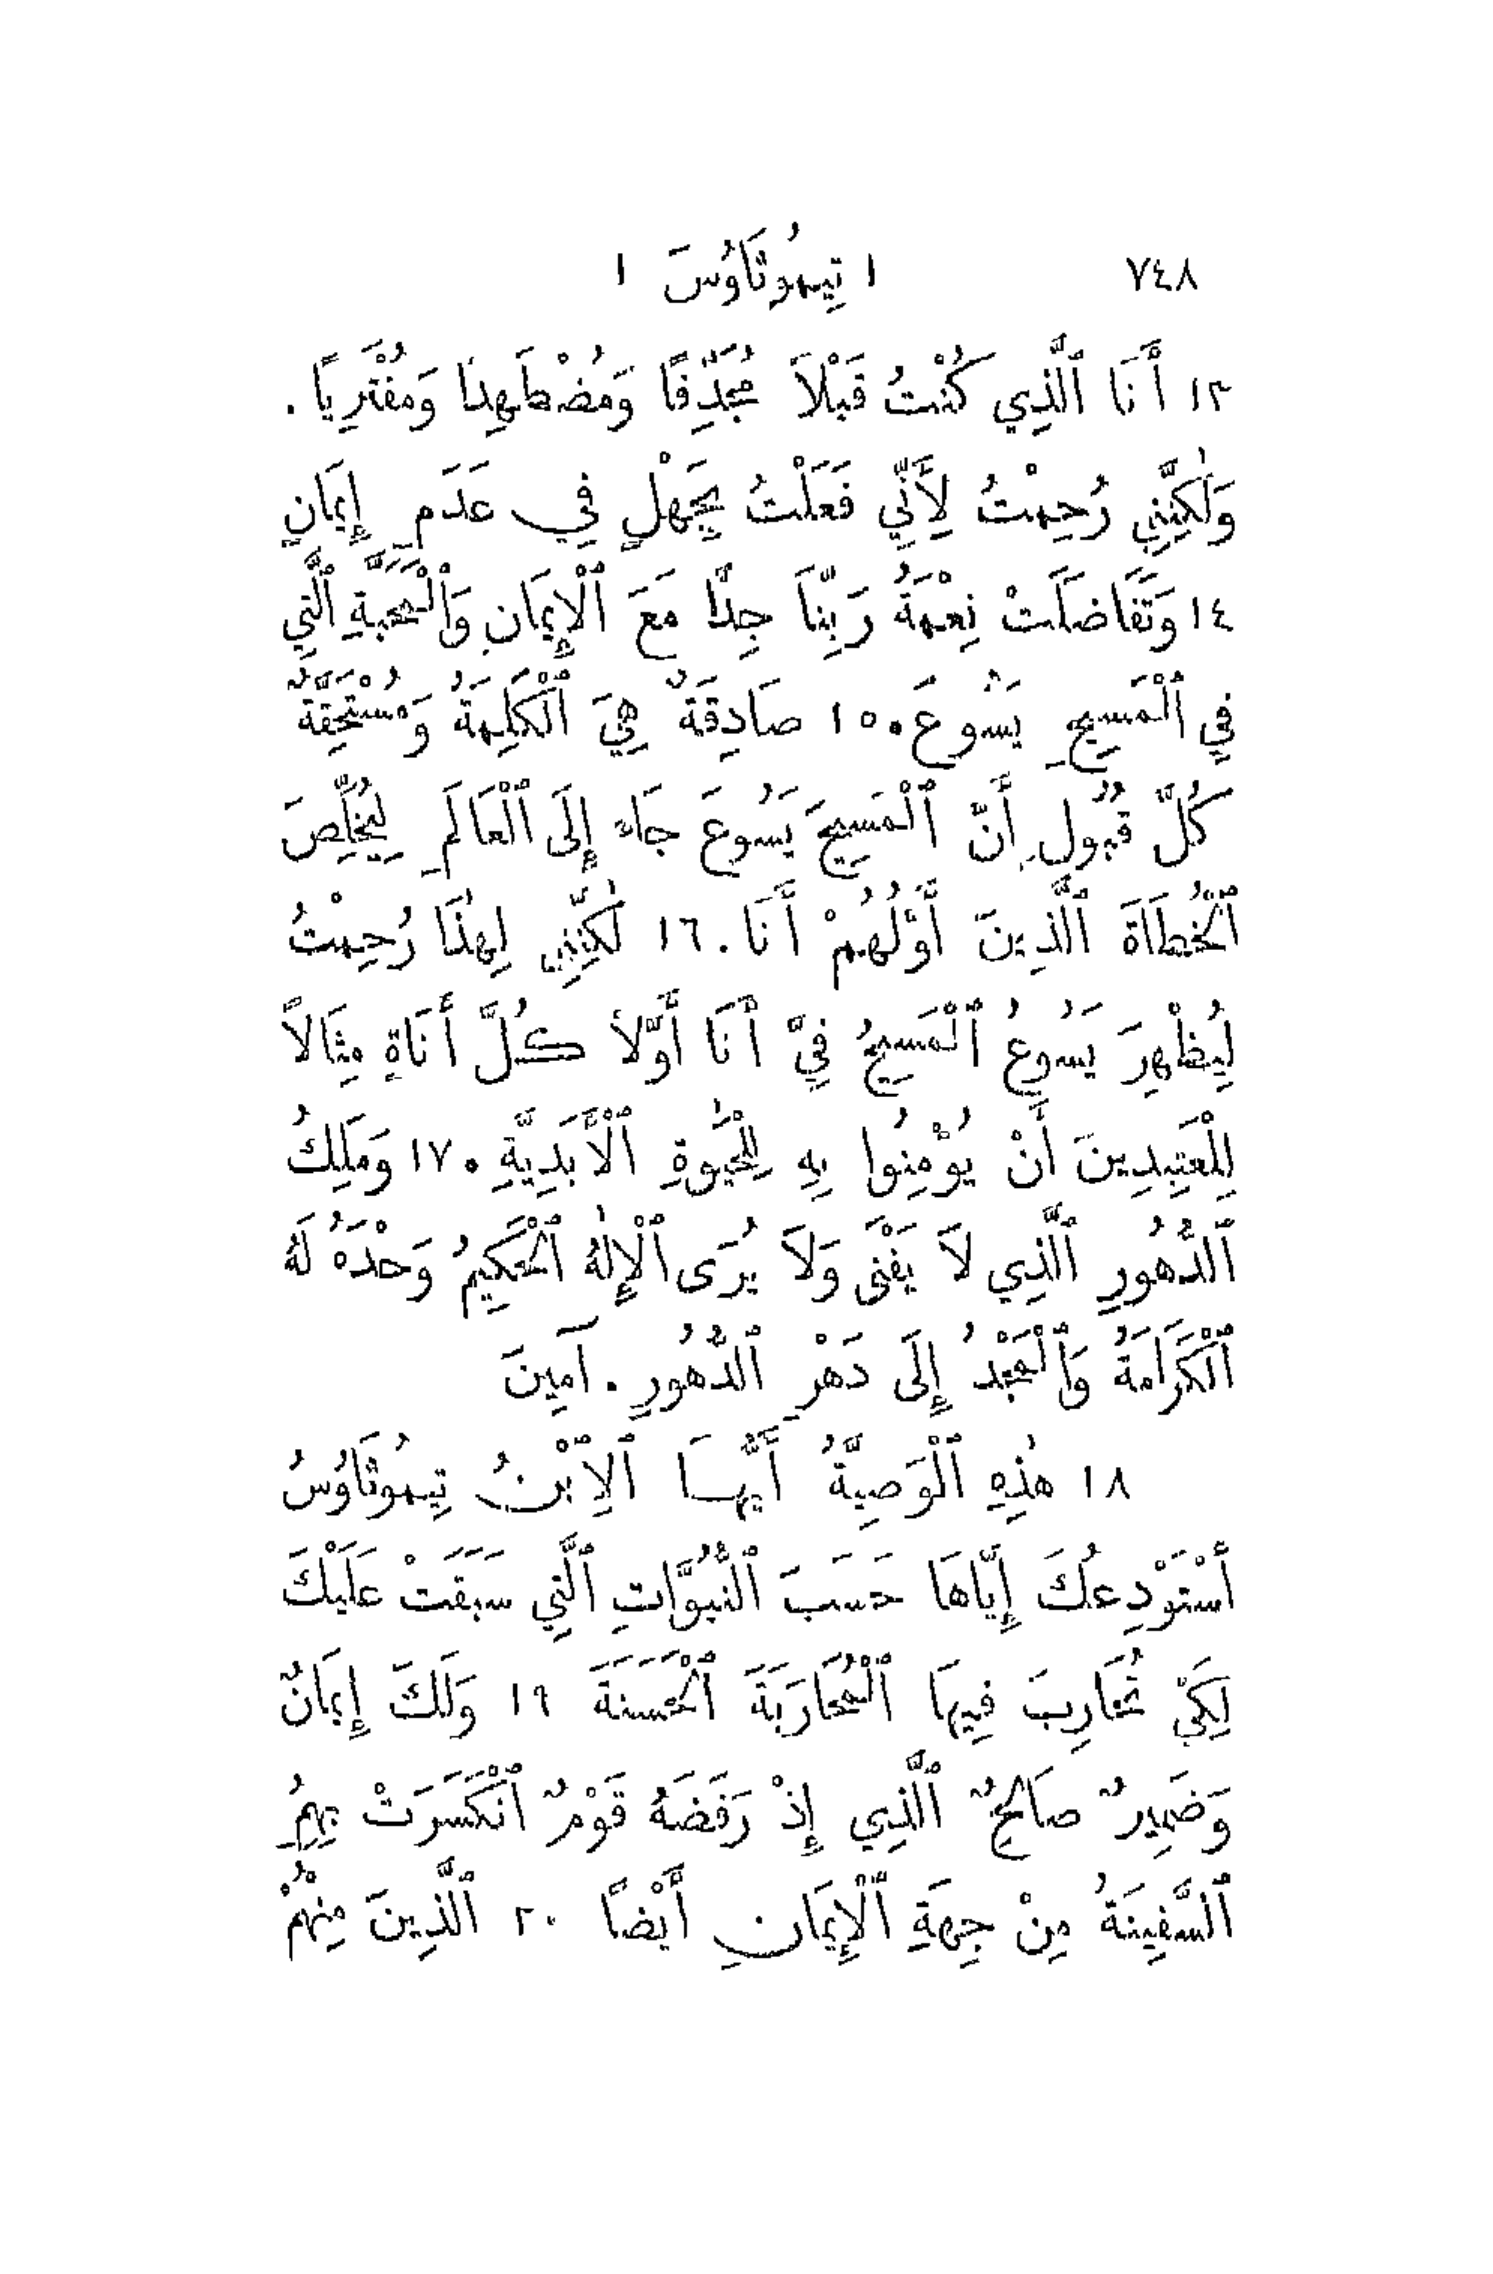 ٧٤٨ ١ تِيمُوثَاوُسَ ١
١٣ أَنَا ٱلَّذِي كُنْتُ قَبْلاً مُجَدِّفًا وَمُضْطَهِدًا وَمُفْتَرِيًا.
وَلٰكِنَّنِي رُحِمْتُ لِأَنِّي فَعَلْتُ بِجَهْلٍ فِي عَدَمِ إِيمَانٍ
١٤ وَتَفَاضَلَتْ نِعْمَةُ رَبِّنَا جِدًّا مَعَ ٱلْإِيمَانِ وَٱلْمَحَبَّةِ ٱلَّتِي
فِي ٱلْمَسِيحِ يَسُوعَ. ١٥ صَادِقَةٌ هِيَ ٱلْكَلِمَةُ وَمُسْتَحِقَّةٌ
كُلَّ قُبُولٍ أَنَّ ٱلْمَسِيحَ يَسُوعَ جَاءَ إِلَى ٱلْعَالَمِ لِيُخَلِّصَ
ٱلْخُطَاةَ ٱلَّذِينَ أَوَّلُهُمْ أَنَا. ١٦ لٰكِنَّنِي لِهٰذَا رُحِمْتُ
لِيُظْهِرَ يَسُوعُ ٱلْمَسِيحُ فِيَّ أَنَا أَوَّلاً كُلَّ أَنَاةٍ مِثَالاً
لِلْعَتِيدِينَ أَنْ يُؤْمِنُوا بِهِ لِلْحَيٰوةِ ٱلْأَبَدِيَّةِ. ١٧ وَمَلِكُ
ٱلدُّهُورِ ٱلَّذِي لاَ يَفْنَى وَلاَ يُرَى ٱلْإِلٰهُ ٱلْحَكِيمُ وَحْدَهُ لَهُ
ٱلْكَرَامَةُ وَٱلْمَجْدُ إِلَى دَهْرِ ٱلدُّهُورِ. آمِينَ
١٨ هٰذِهِ ٱلْوَصِيَّةُ أَيُّهَا ٱلِٱبْنُ تِيمُوثَاوُسُ
أَسْتَوْدِعُكَ إِيَّاهَا حَسَبَ ٱلنُّبُوَّاتِ ٱلَّتِي سَبَقَتْ عَلَيْكَ
لِكَيْ تُحَارِبَ فِيهَا ٱلْمُحَارَبَةَ ٱلْحَسَنَةَ ١٩ وَلَكَ إِيمَانٌ
وَضَمِيرٌ صَالِحٌ ٱلَّذِي إِذْ رَفَضَهُ قَوْمٌ ٱنْكَسَرَتْ بِهِمِ
ٱلسَّفِينَةُ مِنْ جِهَةِ ٱلْإِيمَانِ أَيْضًا ٢٠ ٱلَّذِينَ مِنْهُمْ